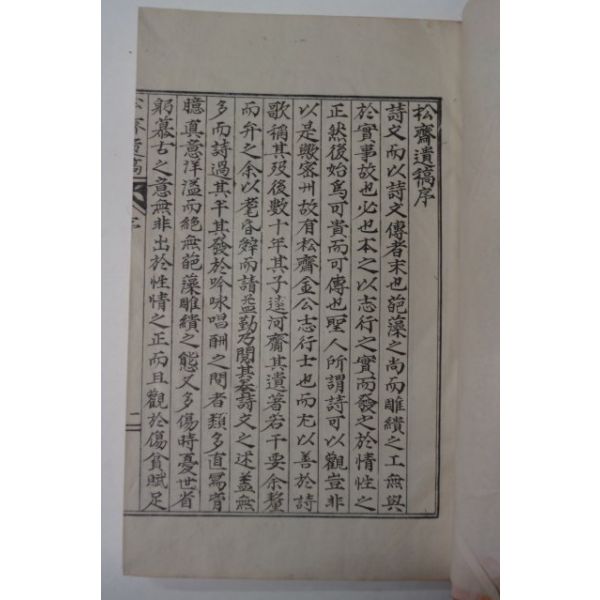 松齋遺稿序
詩文而以詩文傳者末也葩藻之尚而雕繢之工無與
於實事故也必也本之以志行之實而發之於情性之
正然後始爲可貴而可傳也聖人所謂詩可以觀豈非
以是歟密州故有松齋金公志行士也而尤以善於詩
歌稱其歿後數十年其子達河齎其遺著若干要余釐
而弁之余以耄昏辭而請益勤乃閱其卷詩文之述盖無
多而詩過其半其發於吟咏唱酬之間者類多直寫胷
臆真意洋溢而絶無葩藻雕繢之態又多傷時憂世省
躬慕古之意無非出於性情之正而且觀於傷貧賦足
松齋遺稿 序 二